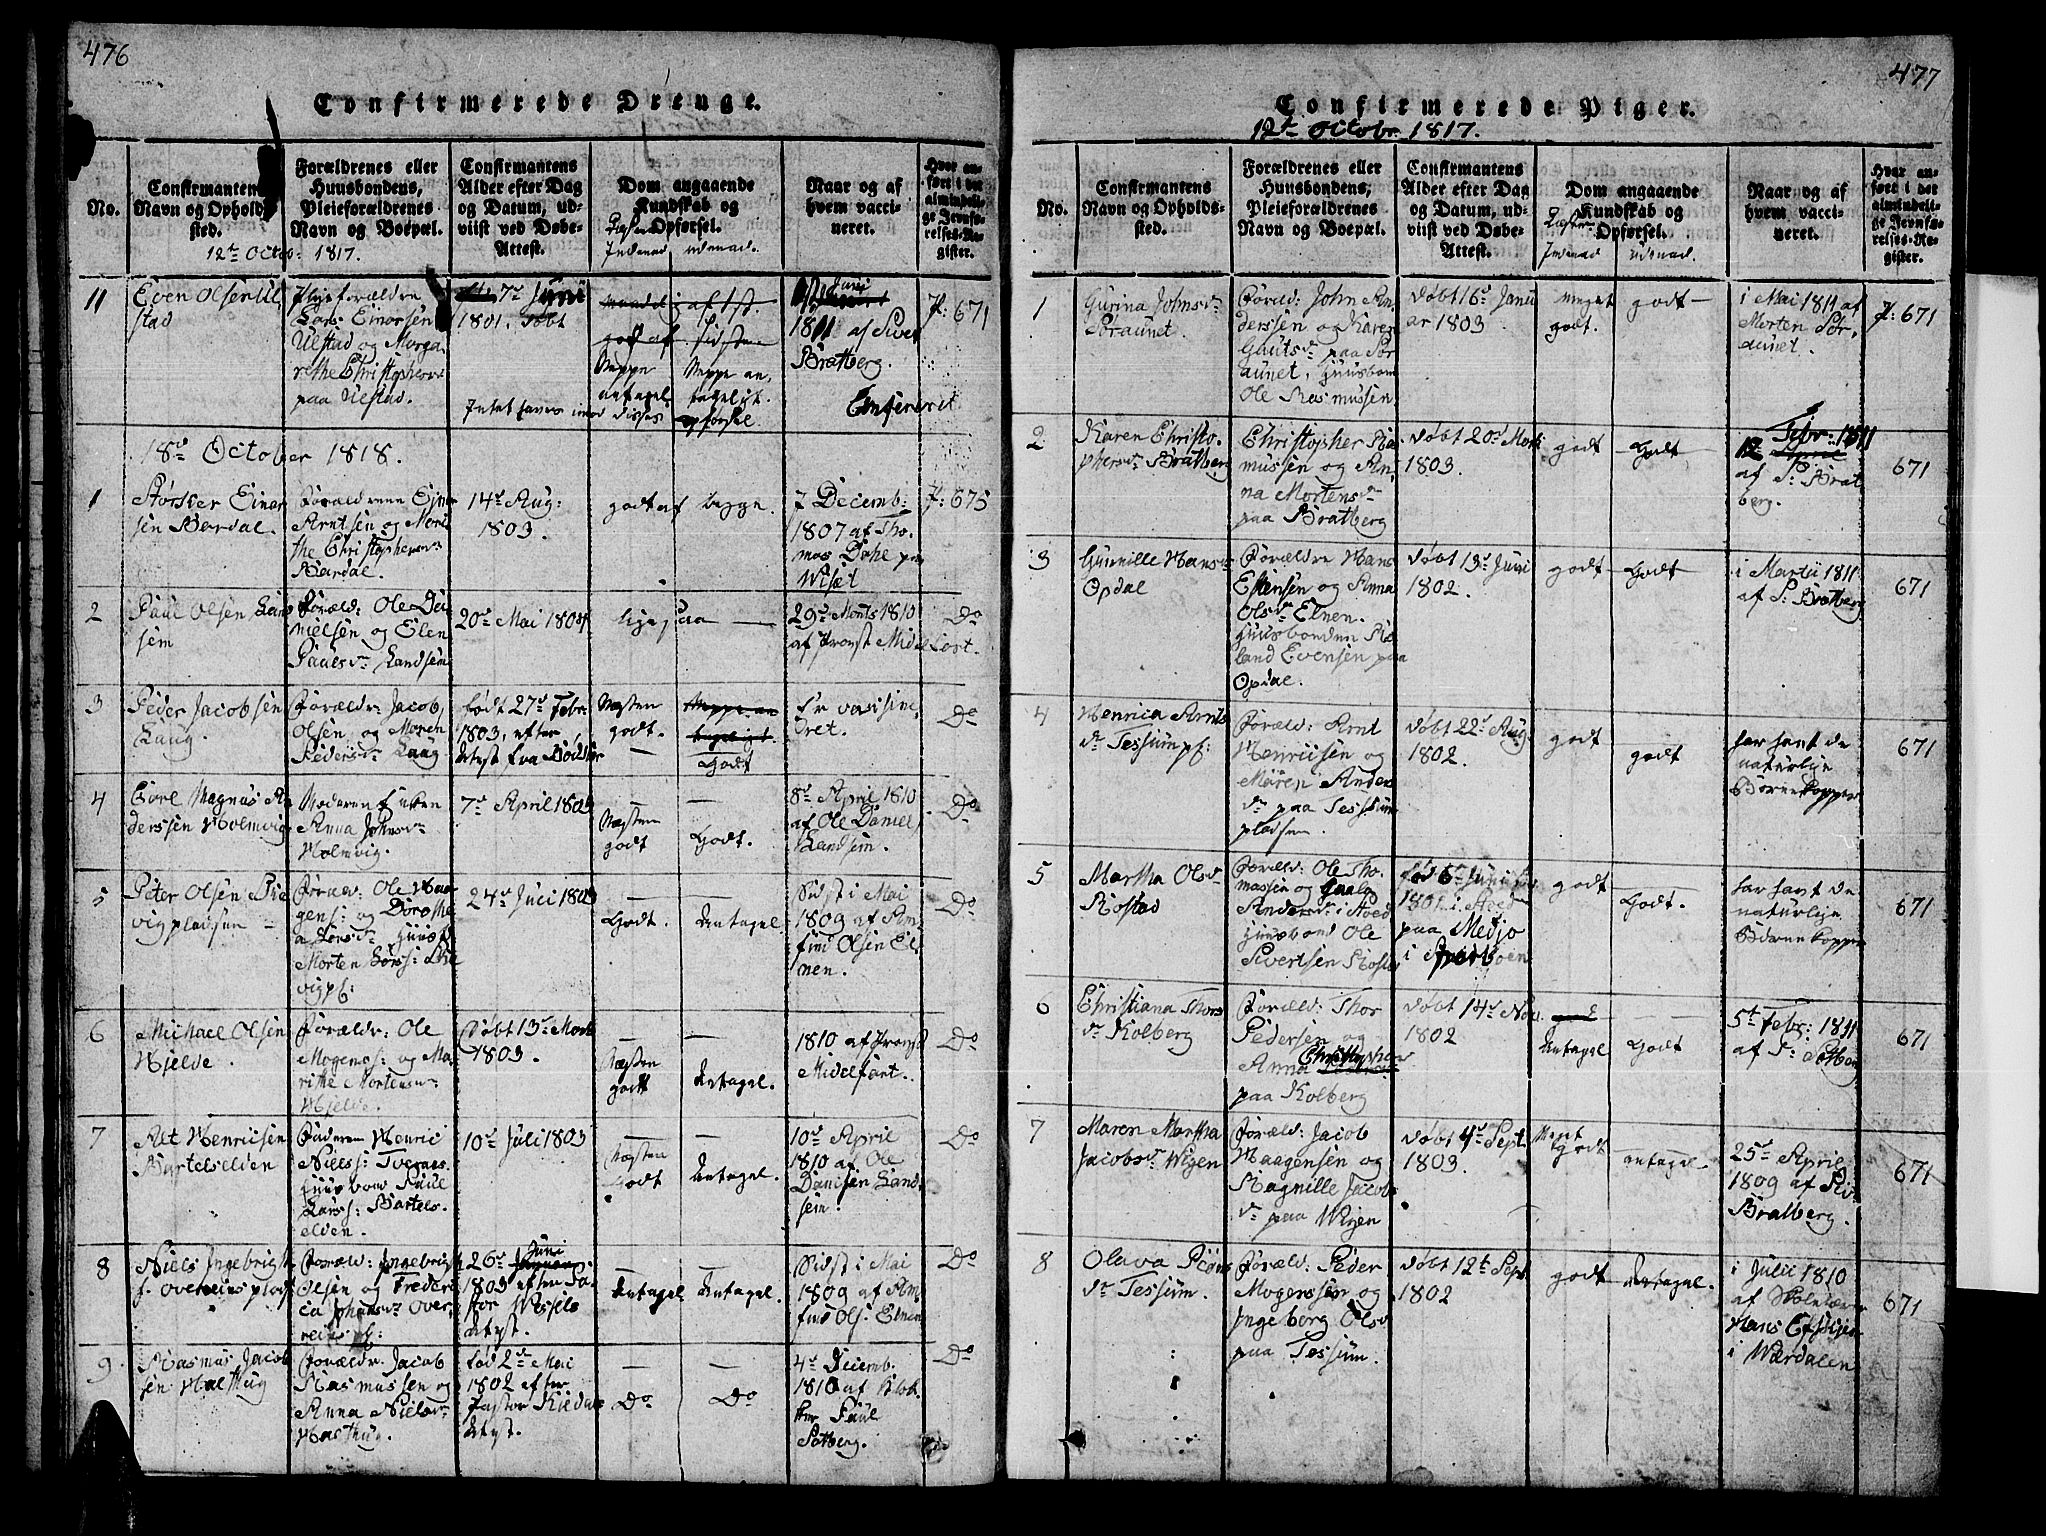 476
Confirmerede Drenge.
No.
Confirmantens Navn og Opholdssted.
Forældrenes eller Huusbondens, Pleieforældrenes Navn og Boepæl.
Confirmantens Alder efter Dag og Datum, udviist ved Døbe-Attest.
Dom angaaende Kundskab og Opførsel.
Indenad udenad.
Naar og af hvem vaccineret.
Hvor anført i det almindelige Jevnførelses-Register.
12te Octob: 1817.
11
Even Olsen Ulstad
Lars Einersen
Ulstad og Marga
rethe Christophersdr
paa Ulstad.
7de Juni
1801. døbt
Neppe
antagel
Neppe an
tagelig
opførsel
Juni
1811 af Sivert
Bratberg.
P: 671
Confereret
18de October 1818.
1
Størker Einer
sen Bardal.
Forældrene Ejner
Arntsen og Meri
the Christophersdr
Bardal.
14de Aug:
1803.
godt af begge.
7 Decemb:
1807 af Tho
mas Dahl paa
Wiset
P: 675
2
Paul Olsen Land
sem
Foræld: Ole Da
nielsen og Elen
Paulsdr Landsem
20de Mai 1804
ligesaa —
29de Marts 1810
af Provst Midelfort.
Do
3
Peder Jacobsen
Laug.
Forældr: Jacob
Olsen og Maren
Pedersdr Laug
født 27de Febr:
1803, efter
Attest fra
Næsten
godt.
Godt
Er vaccine
ret.
Do
4
Carl Magnus An
derssen Holmvig
Moderen Enken
Anna Johnsdr
Holmvig.
7de April 1803
Næsten
godt
Godt.
8de April 1810
af Ole Daniels
Landsem.
Do
5
Peter Olsen
vigpladsen
Foræld: Ole Haa
gens: og Dorothe
a Larsdr Huusb:
Morten Lars:
vigpl:
24de Juli 1803
Godt.
Antagel
Sidst i Mai
1809 af Arn
find Olsen El
nen.
Do
6
Michael Olsen
Hjelde.
Forældr: Ole
Mogens: og Ma
rithe Mortensdr
Hjelde.
Døbt 13de Marts
1803.
Næsten
godt
Antagel.
1810 af Provst
Midelfart.
Do
7
Alt Henricsen
Bartelselden
Faderen Henric
Niels: Tvernes
Huusbond Paul
Lars: Bartels
elden.
10de Juli 1803
Næsten
Godt
Antagel.
10de April
1810 af Ole
Danisen Land
sem.
Do
8
Niels Ingebrigt
s. Overreinsplads
Foræld: Ingebrigt
Olsen og Frederi
ca Johansdr Over
reins pl:
26de Juni
1803 efter Pa
stor Wessels
Attest.
Antagel
Antagel.
Sidst i Mai
1809 af Arn
find Ols: Elnen
Do
9.
Rasmus Jacob
sen Hasthug
Forældr: Jacob
Rasmussen og
Anna Nielsdr
Hasthug.
født 2de Mai
1802 efter
Pastor
Attest.
Do
Do
4de Decemb.
1810 af Klok
ker Paul
Solberg.
Do
477
Confirmerede Piger.
12te Octobr 1817.
No.
Confirmantens Navn og Opholdssted.
Forældrenes eller Huusbondens, Pleieforældrenes Navn og Boepæl.
Confirmantens Alder efter Dag og Datum, udviist ved Døbe-Attest.
Dom angaaende Kundskab og Opførsel.
Indenad udenad.
Naar og af hvem vaccineret.
Hvor anført i det almindelige Jevnførelses-Register.
1
Gurina Johnsdr
Søraunet.
Foræld: John An
derssen og Karen
Gautsdr paa Sør
aunet, Huusbon
Ole Rasmussen
døbt 16de Janu
ar 1803.
meget
godt.
godt —
i Mai 1811 af
Morten Sør
aunet.
P: 671
2
Karen Christo
phersdr Bratberg
Christopher Ra
mussen og An
na Mortensdr
paa Bratberg
døbt 20de Marts
1803.
godt
Godt
12 Febr: 1811
af S: Brat
berg.
671
3
Gunnille Hansdr
Opdal
Forældre Hans
Estensen og Anna
Olsdr Elnen.
Huusbonden Ro
land Evensen paa
Opdal.
døbt 13de Juni
1802.
godt
Godt
i Martii 1811
af S: Bratberg
671
4
Henrica Arnts
dr Tessumpl:
Foræld: Arnt
Henricsen og
Maren Anders
dr paa Tessum
pladsen.
døbt 22de Aug:
1802.
godt
godt
har havt de
naturlige
Børnekopper
671
5
Martha Olsdr
Rostad
Foræld: Ole Tho
massen og
Andersdr i
Huusbond Ole
Sivertsen Rostad
fød 6te Juni
1801
paa Medjo
i
godt
Godt.
har havt de
naturlige
Børnekopper
671
6
Christiana Thors
dr Kolberg
Foræld: Thor
Pedersen og
Anna Christophersdr
paa Kolberg
døbt 14de Nov.
1802
Antagel
Godt
5te Febr: 1811
af P: Solberg
671
7
Maren Martha
Jacobsdr Wigen
Foræld: Jacob
Haagensen og
Ragnille Jacobs
dr paa Wigen
døbt 4de Sept
1803.
Megt
Godt
antagel
25de April
1809 af Siv:
Bratberg.
671
8
Olava Peders
dr Tessum.
Foræld: Peder
Mogenssen og
Ingeborg Olsdr
paa Tessum.
døbt 12te Sept
1802
godt
Antagel.
i Julii 1810
af Skolelærer
Hans
i Wærdalen
671